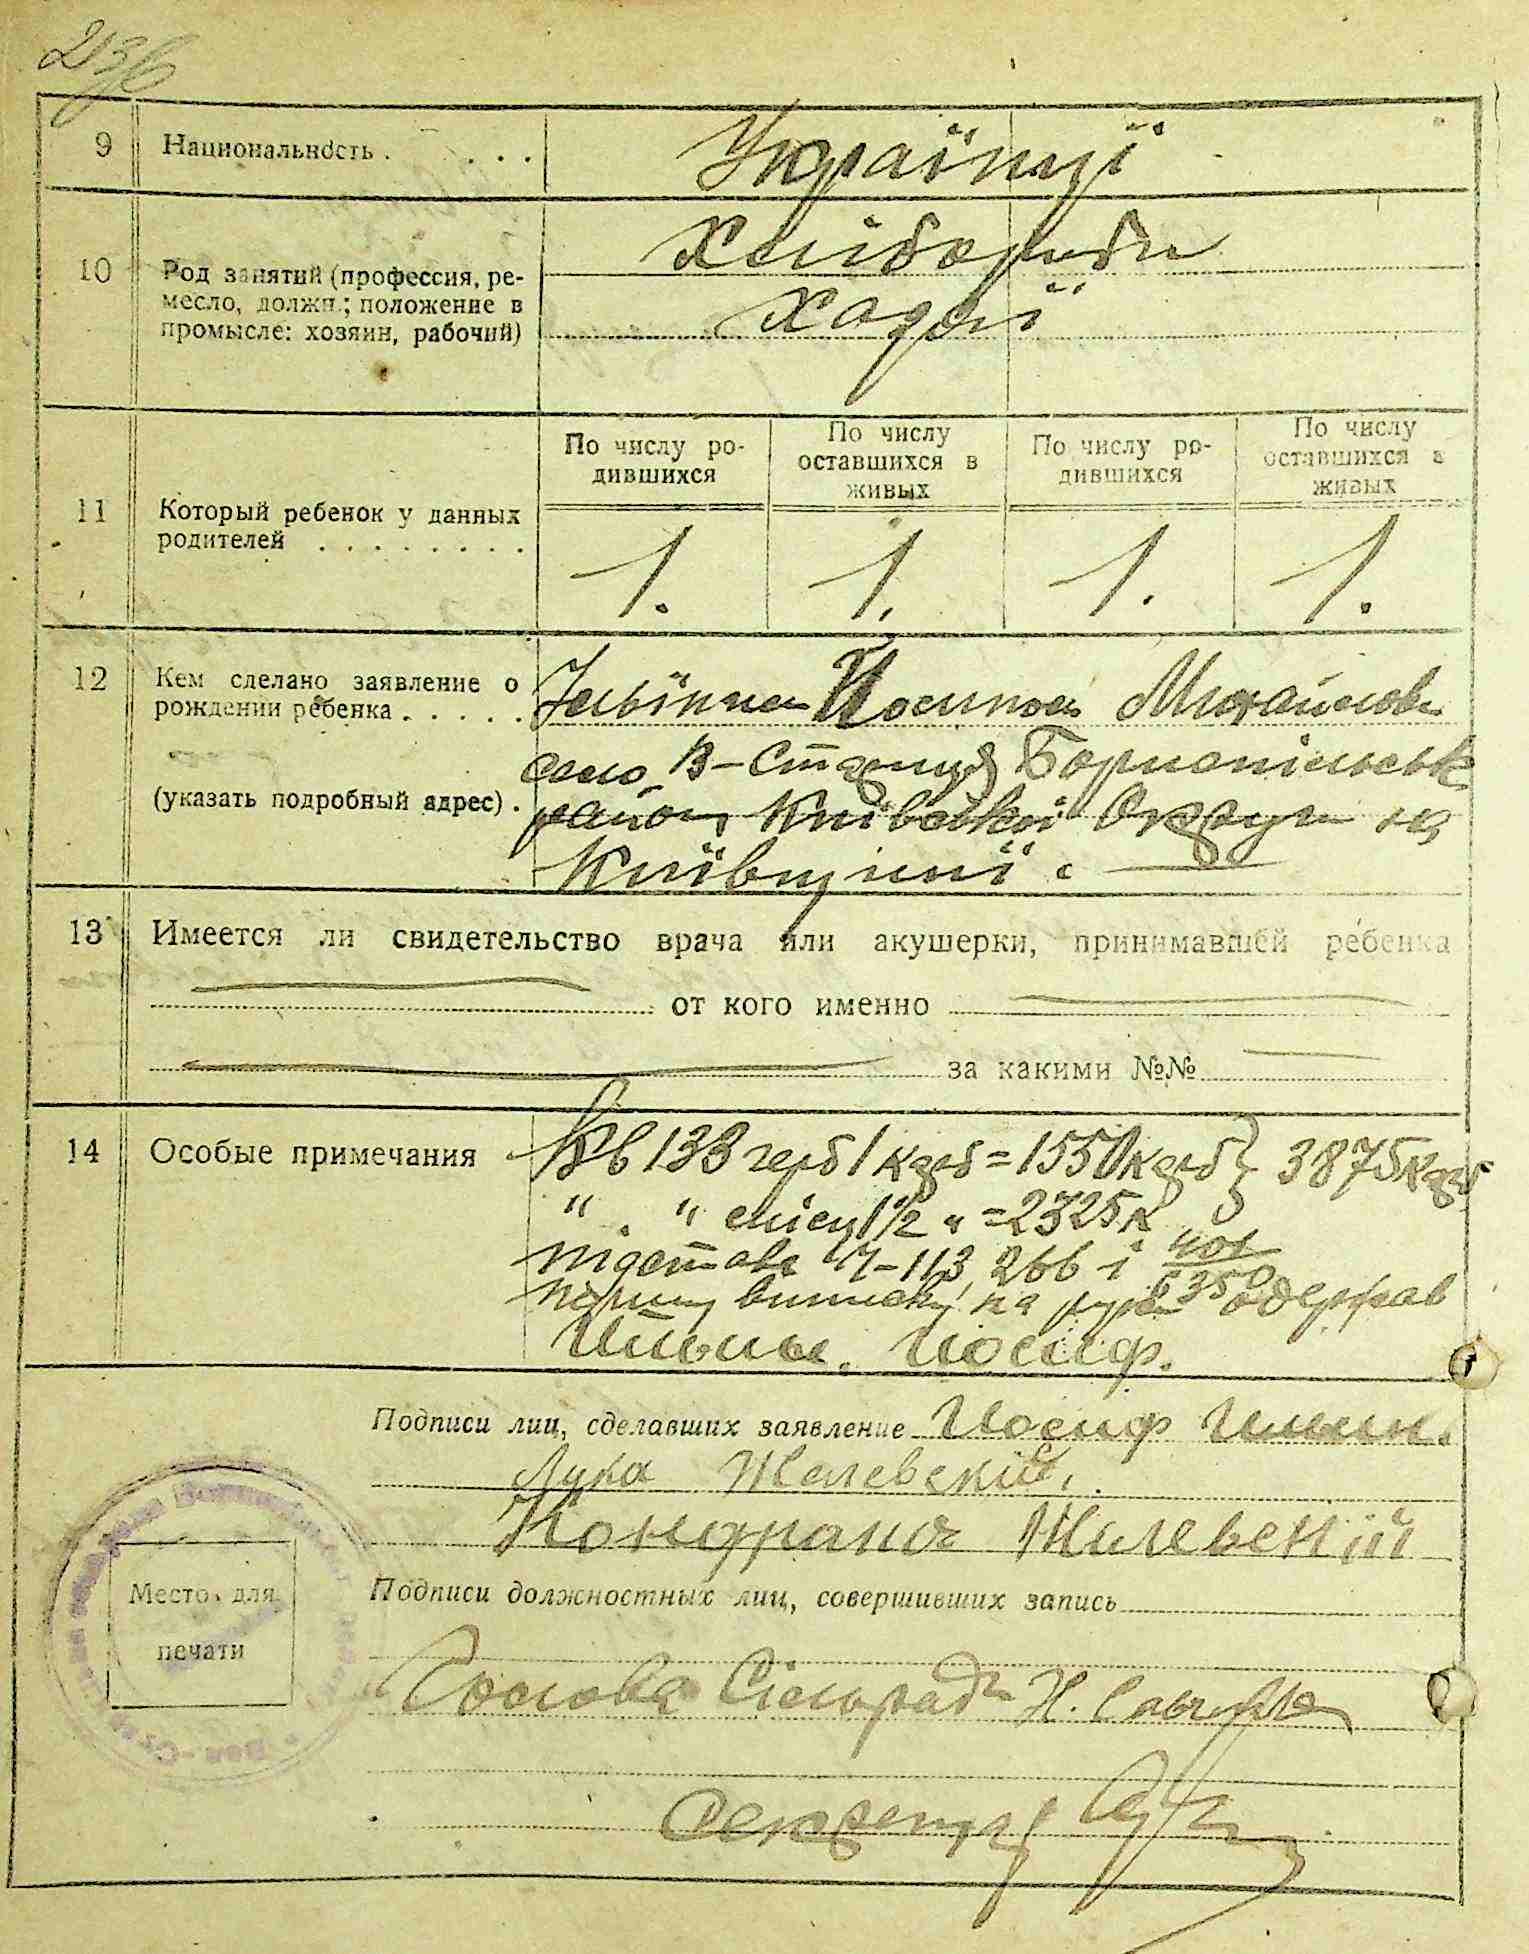 9 Национальность . . . . Українці
10 Род занятий (профессия, ре-
месло, должн.; положение в
промысле: хозяин, рабочий)
Хлібороби
11 Который ребенок у данных
родителей . . . . . . . .
По числу ро-
дившихся
По числу
оставшихся в
живых
По числу ро-
дившихся
По числу
оставшихся в
живых
1. 1. 1. 1.
12 Кем сделано заявление о
рождении ребенка . . . . .
(указать подробный адрес) .
Йосипом Михайлов
село В-Стариця Бориспільськ
району Київської Округи на
Київщині.
13 Имеется ли свидетельство врача или акушерки, принимавшей ребенка
от кого именно
за какими №№
14 Особые примечания
Кв 133 герб 1 = 1550 3875
" . " 1½ " = 2325к
підстава 266 і
першу виписку на руки одержав
Иосиф.
Подписи лиц, сделавших заявление Иосиф Ильин.
Лука Жилевский.
Кондрат Жилевский
Место для
печати
Подписи должностных лиц, совершивших запись
Голова Сільради Н.
Секретар